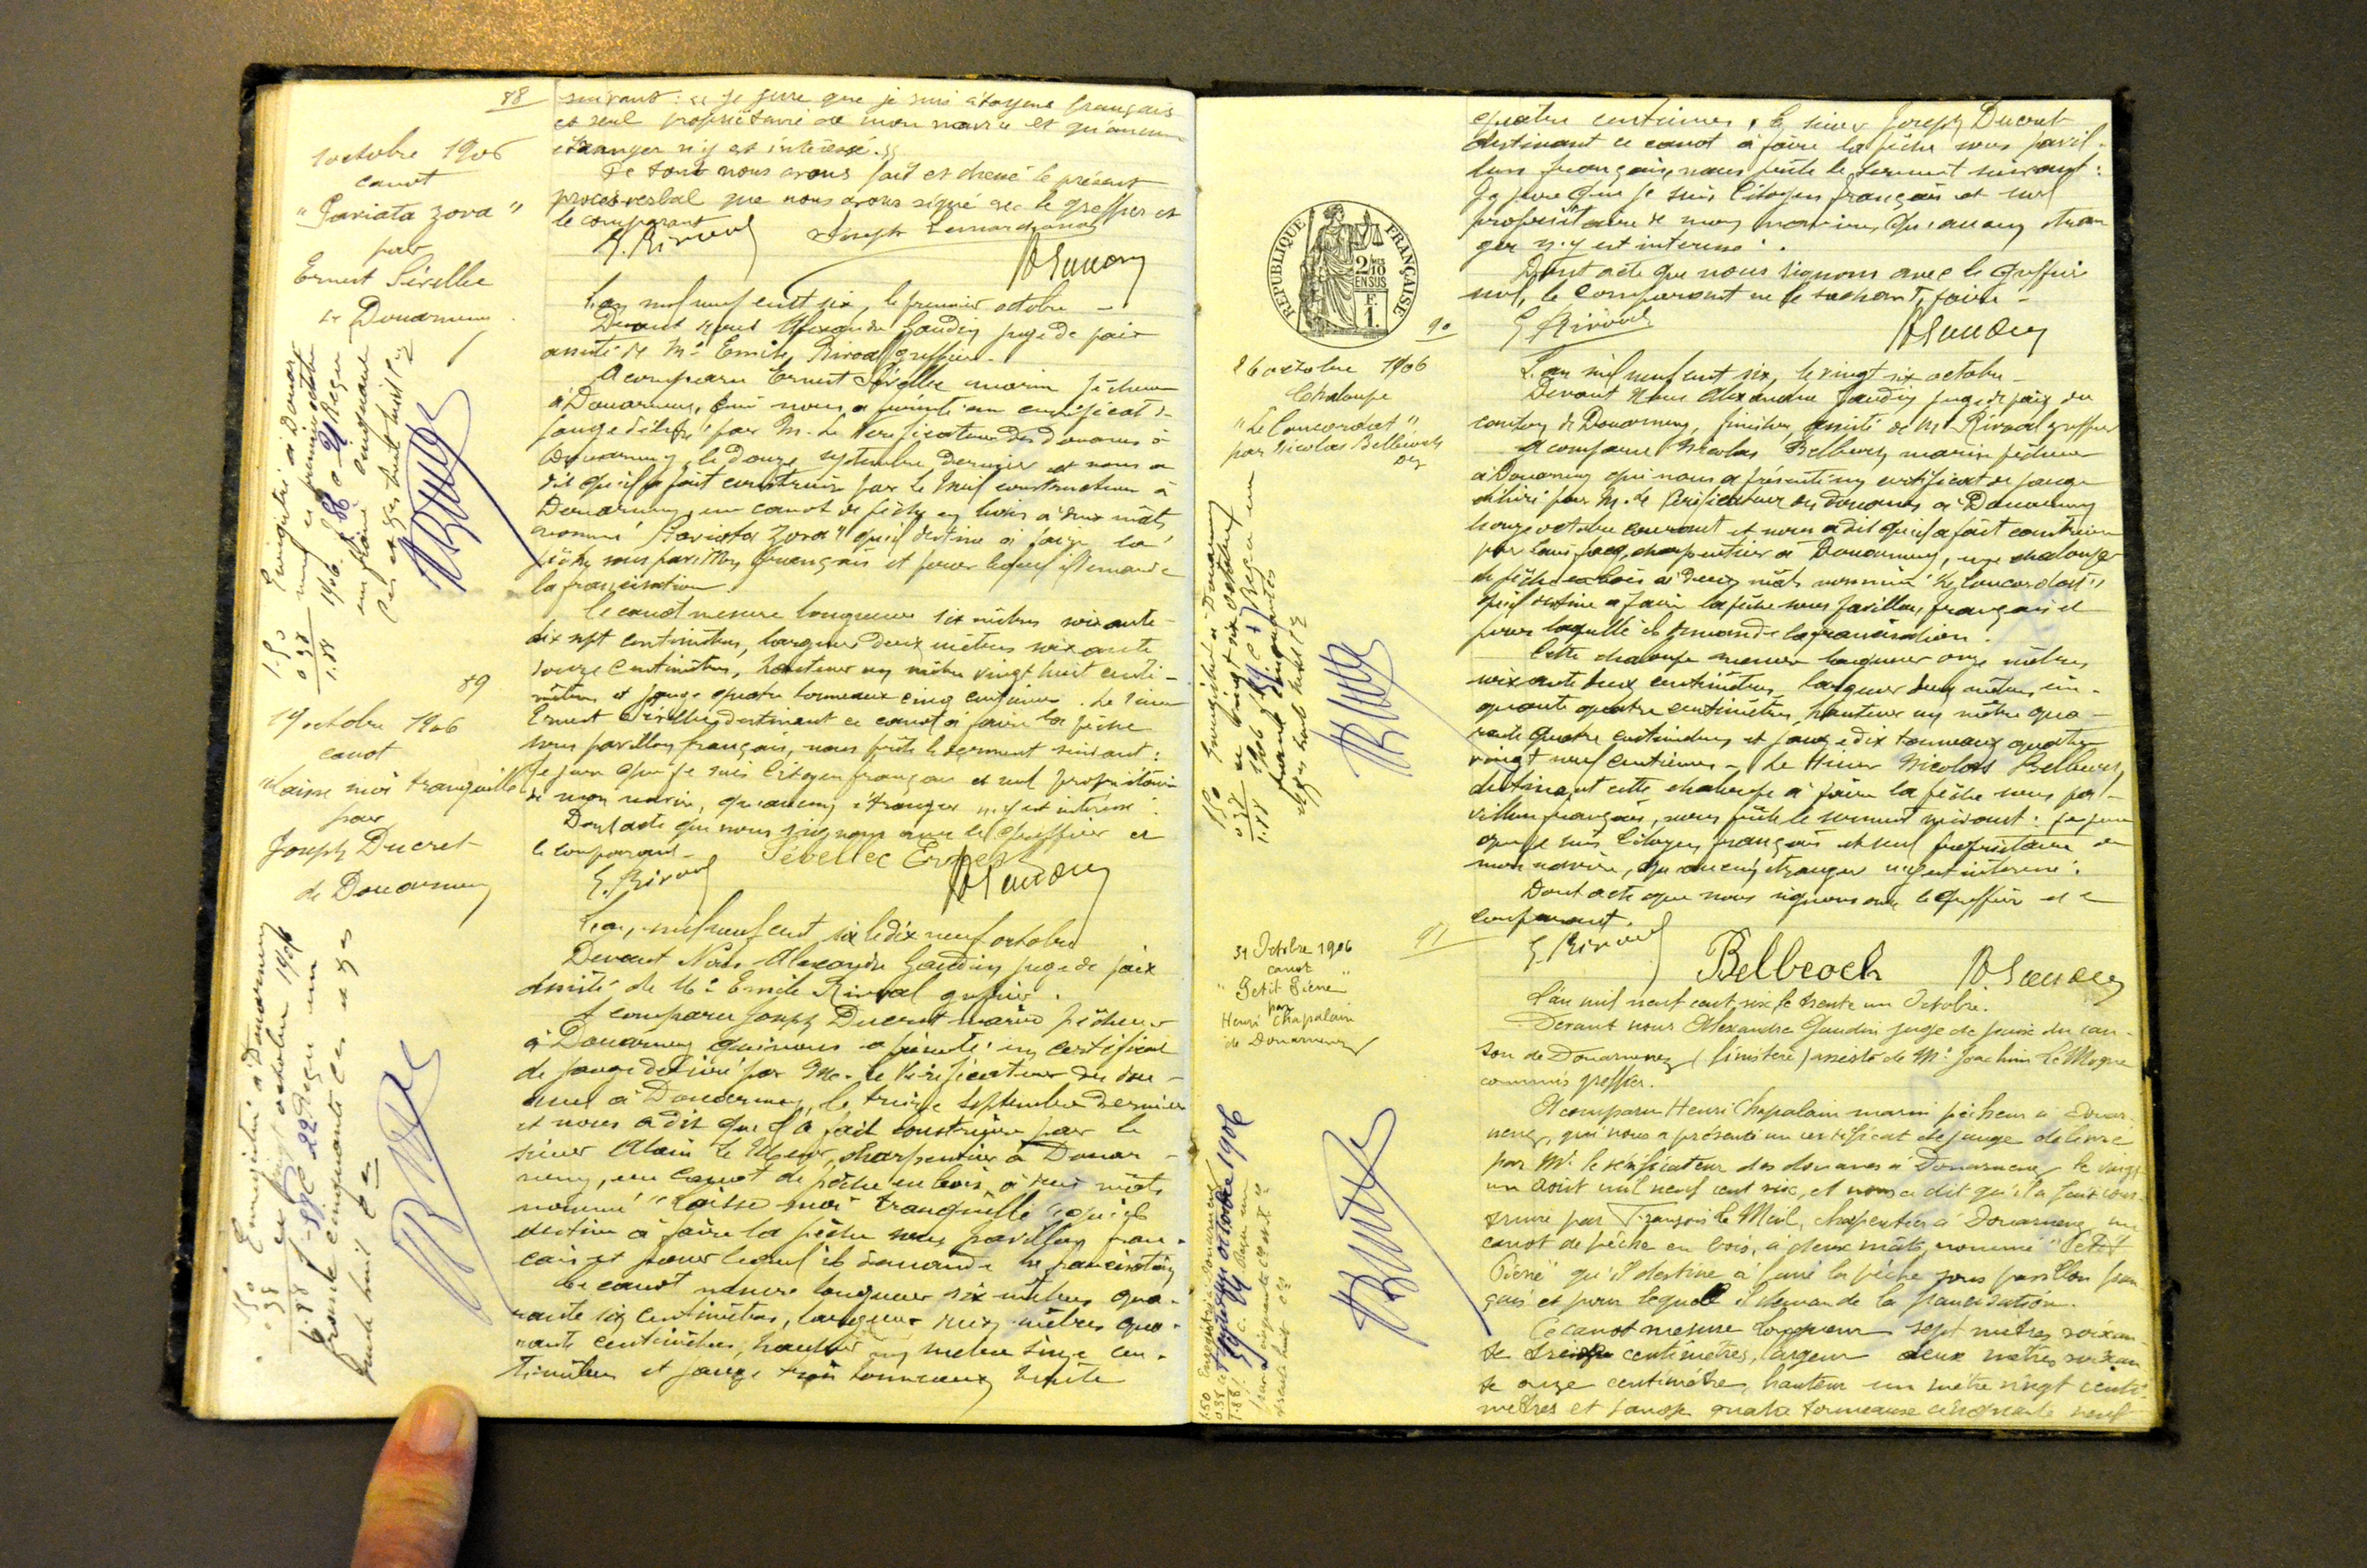 88
suivant : " je jure que je suis citoyen français
et seul propriétaire de mon navire et qu'aucun
étranger n'y est intéressé. "
De tout nous avons fait et dressé le présent
procès-verbal que nous avons signé avec le greffier et
le comparant
E. Rivoal Joseph
1 octobre 1906
canot
"Paviata Zova"
par
Ernest Sévellec
de Douarnenez
L'an mil neuf cent six, le premier octobre
Devant nous Alexandre Gaudin juge de paix
assisté de Me Emile Rivoal greffier.
A comparu Ernest Sévellec marin pêcheur
à Douarnenez, qui nous a présenté un certificat de
jauge délivré par M. le Vérificateur des douanes à
Douarnenez, le douze septembre dernier et nous a
dit qu'il a fait construire par Le constructeur à
Douarnenez, un canot de pêche en bois à deux mâts
nommé "Paviata Zova" qu'il destine à faire la
pêche sous pavillon français et pour lequel il demande
la francisation
Le canot mesure longueur six mètres soixante-
dix sept centimètres, largeur deux mètres soixante
centimètres, hauteur un mètre vingt huit centi-
mètres et jauge quatre tonneaux cinq centièmes. Le sieur
Ernest Sévellec, destinant ce canot à faire la pêche
sous pavillon français, nous prête le serment suivant :
Je jure que je suis Citoyen français et seul propriétaire
de mon navire, qu'aucun étranger n'y est intéressé.
Dont acte que nous signons avec le Greffier et
le comparant.
Sévellec Ernest
E. Rivoal
Enregistré à Douarnenez
1.50
0.38
1.88
89
19 octobre 1906
canot
"Laisse moi tranquille"
par
Joseph Ducret
de Douarnenez
L'an mil neuf cent six le dix neuf octobre
Devant Nous Alexandre Gaudin juge de paix
assisté de Me Emile Rivoal greffier.
A comparu Joseph Ducret marin pêcheur
à Douarnenez qui nous a présenté un certificat
de jauge délivré par M. le Vérificateur des doua-
nes à Douarnenez, le treize septembre dernier
et nous a dit qu'il a fait construire par le
sieur Alain Le charpentier à Douar-
nenez, un canot de pêche en bois, à deux mâts
nommé "Laisse moi tranquille" qu'il
destine à faire la pêche sous pavillon fran-
çais et pour lequel il demande la francisation
Ce canot mesure longueur six mètres qua-
rante six centimètres, largeur deux mètres qua-
rante centimètres, hauteur un mètre cen-
timètres et jauge trois tonneaux trente
Enregistré à Douarnenez
1.50
0.38
1.88
quatre centièmes, le sieur Joseph Ducret
destinant ce canot à faire la pêche sous pavil-
lon français, nous prête le serment suivant :
Je jure que je suis Citoyen français et seul
propriétaire de mon navire, qu'aucun étran
ger n'y est intéressé.
Dont acte que nous signons avec le Greffier
seul, le Comparant ne le sachant faire.
E. Rivoal
RÉPUBLIQUE FRANÇAISE
2/10
EN SUS
F.
1.
90
26 octobre 1906
Chaloupe
"Le Concordat"
par Nicolas Belbeoch
L'an mil neuf cent six, le vingt six octobre
Devant Nous Alexandre Gaudin juge de paix du
canton de Douarnenez, Finistère, assisté de Me Rivoal greffier
A comparu Nicolas Belbeoch, marin pêcheur
à Douarnenez qui nous a présenté un certificat de jauge
délivré par M. le Vérificateur des douanes à Douarnenez
le onze octobre courant et nous a dit qu'il a fait construire
par charpentier à Douarnenez, une chaloupe
de pêche en bois à deux mâts nommée "Le Concordat"
qu'il destine à faire la pêche sous pavillon français et
pour laquelle il demande la francisation.
Cette chaloupe mesure longueur onze mètres
soixante deux centimètres, largeur deux mètres cin-
quante quatre centimètres, hauteur un mètre qua-
rante quatre centimètres et jauge dix tonneaux quatre
vingt neuf centièmes. Le sieur Nicolas Belbeoch
destinant cette chaloupe à faire la pêche sous pa-
villon français, nous prête le serment suivant : je jure
que je suis Citoyen français et seul propriétaire de
mon navire, qu'aucun étranger n'y est intéressé.
Dont acte que nous signons avec le Greffier et le
comparant.
E. Rivoal Belbeoch A. Gaudin
Enregistré à Douarnenez
1.50
0.38
1.88
91
31 Octobre 1906
canot
"Petit Pierre"
par
Henri Chapalain
de Douarnenez
L'an mil neuf cent six le trente un Octobre.
Devant nous Alexandre Gaudin juge de paix du can-
ton de Douarnenez (Finistère) assisté de Me Joachim Le Moigne
commis greffier.
A comparu Henri Chapalain marin pêcheur à Douar-
nenez, qui nous a présenté un certificat de jauge délivré
par Mr. le vérificateur des douanes à Douarnenez le vingt
un Août mil neuf cent six, et nous a dit qu'il a fait cons-
truire par François le Meil, charpentier à Douarnenez un
canot de pêche en bois, à deux mâts, nommé "Petit
Pierre" qu'il destine à faire la pêche sous pavillon fran
çais et pour lequel il demande la francisation.
Ce canot mesure longueur sept mètres soixan-
te treize centimètres, largeur deux mètres soixan
te onze centimètre, hauteur un mètre vingt centi-
mètres et jauge quatre tonneaux cinquante neuf
Enregistré à Douarnenez
1.50
0.38
1.88